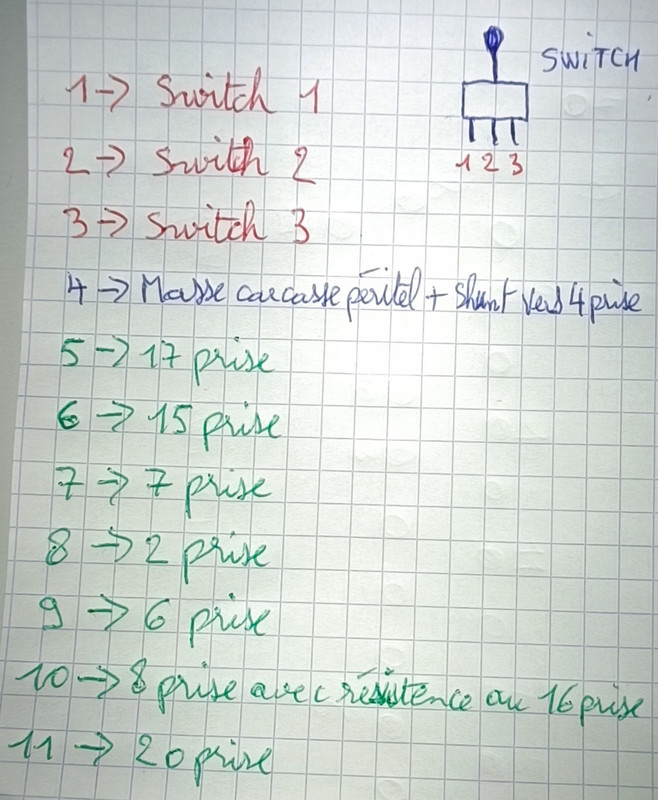 SWITCH
1 -> Switch 1
2 -> Switch 2
1 2 3
3 -> Switch 3
4 -> Masse carcasse péritel + Shunt vers 4 prise
5 -> 17 prise
6 -> 15 prise
7 -> 7 prise
8 -> 2 prise
9 -> 6 prise
10 -> 8 prise avec résistence au 16 prise
11 -> 20 prise